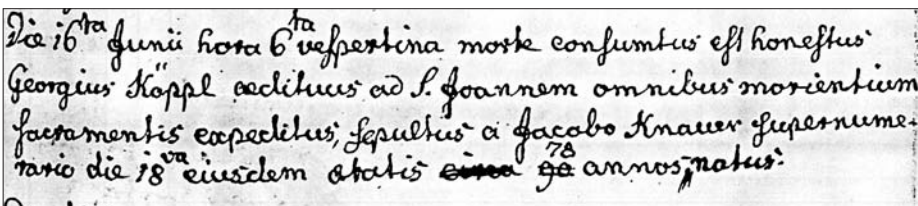 Die 16ta Junii hora 6ta vespertina morte consumtus est honestus
Georgius Köppl aedituus ad S. Joannem omnibus morientium
sacramentis expeditus, sepultus a Jacobo Knauer supernume-
rario die 18va eiusdem aetatis circa 90 78 annos natus.